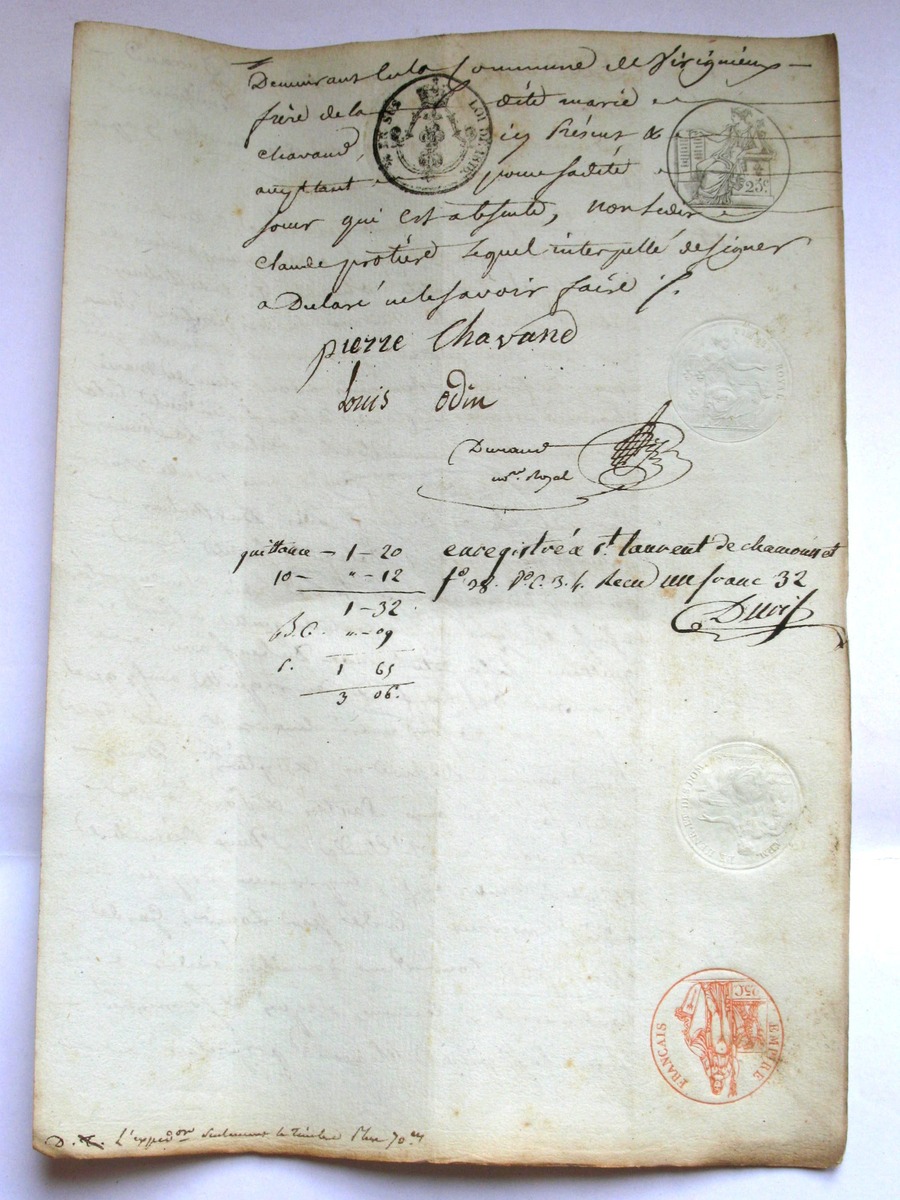 Demeurant en la Commune de Virigneux
frère de la dite marie
chavand, icy présent &
acceptant pour sadite
sœur qui est absente, non ledit
Claude protière lequel interpellé de signer
a Declaré ne le savoir faire
EN SUS
LOI DE 1816
25c
pierre Chavand
Louis Odin
Durand
no.re Royal
quittance – 1–20
10– "–12
1–32
"–09
1 65
3 06c
enregistré à St. laurent de chamousset
fo 98. Ro. C. 3. 4. Recu un franc 32
EMPIRE
FRANCAIS
D. T. L'exped.on Seulement le timbre